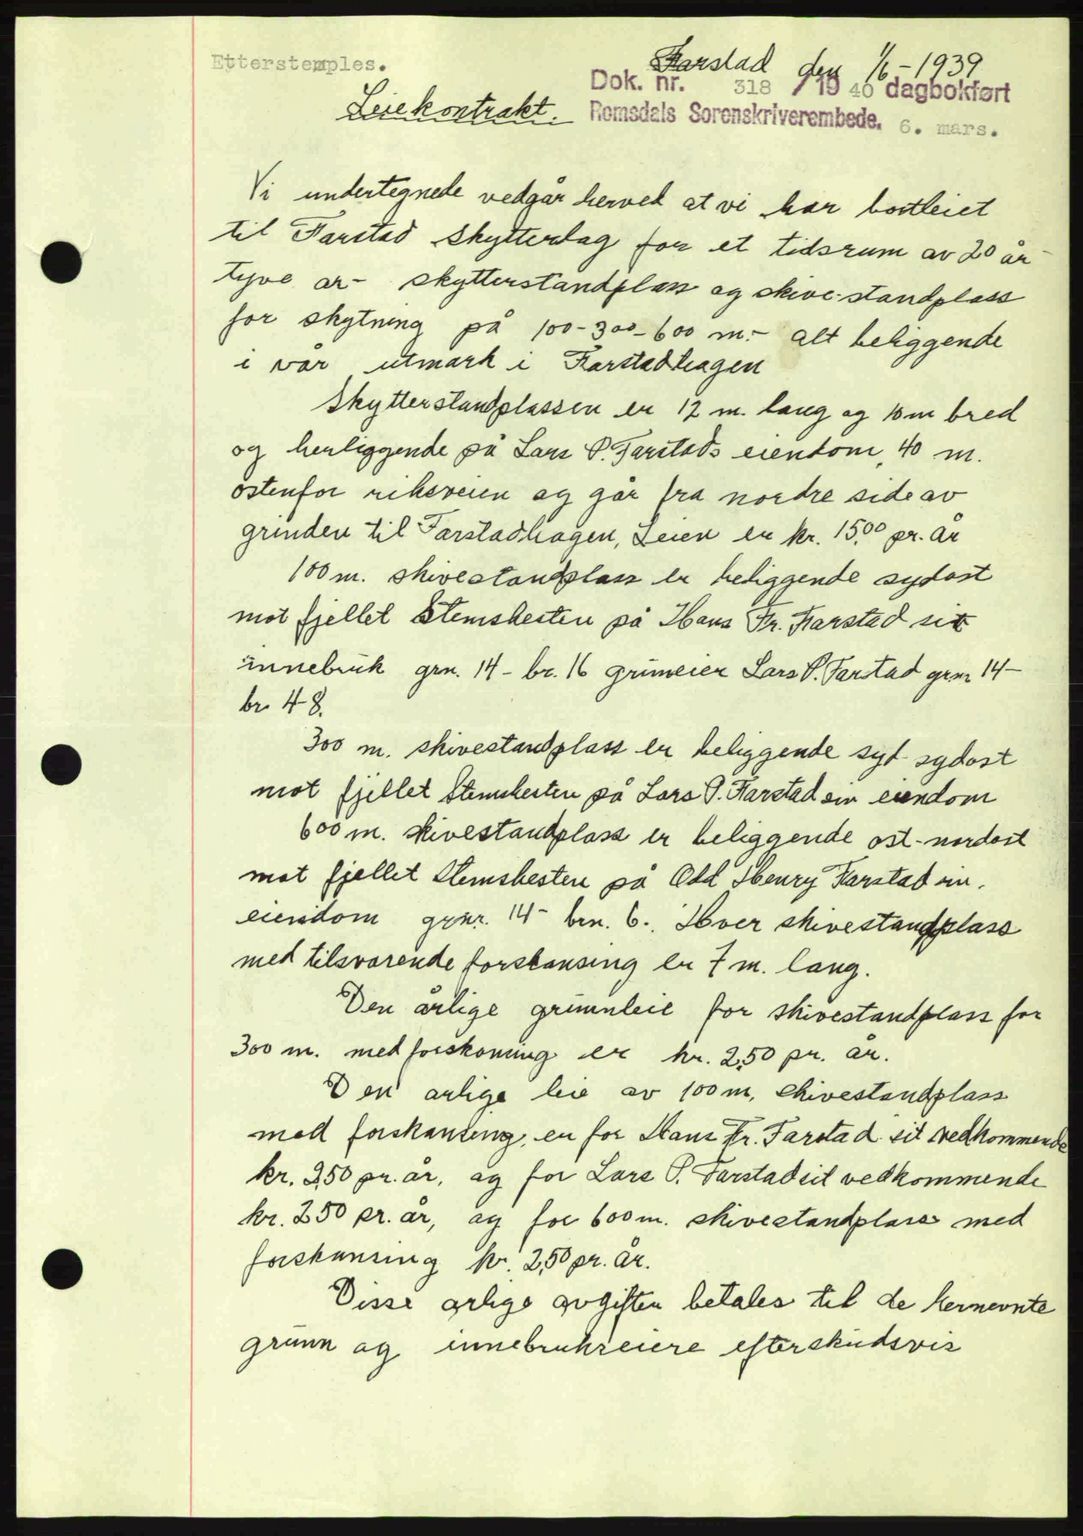 Etterstemples.
Farstad den 1/6-1939
Dok. nr. 318 / 1940 dagbokført
Leiekontrakt.
Romsdals Sorenskriverembede. 6. mars.
Vi undertegnede vedgår herved at vi har bortleiet
til Farstad Skytterlag for et tidsrum av 20 år -
tyve år - skytterstandplass og skive-standplass
for skytning på 100-300-600 m.- alt beliggende
i vår utmark i Farstadhagen
Skytterstandplassen er 12 m. lang og 10 m bred
og herliggende på Lars P. Farstads eiendom, 40 m.
østenfor riksveien og går fra nordre side av
grinden til Farstadhagen, Leien er kr. 15.00 pr. år
100 m. skivestandplass er beliggende sydost
mot fjellet Stemshesten på Hans Fr. Farstad sit
innebruk grn. 14 - br. 16 gruneier Lars P. Farstad grnr 14-
br 48.
300 m. skivestandplass er beliggende syd-sydost
mot fjellet Stemshesten på Lars P. Farstad sin eiendom
600 m. skivestandplass er beliggende ost-nordost
mot fjellet Stemshesten på Odd Henry Farstad sin
eiendom grnr. 14 - brn. 6. Hver skivestandplass
med tilsvarende forskansing er 7 m. lang.
Den årlige grunnleie for skivestandplass for
300 m. med forskansing er kr. 2,50 pr. år.
Den årlige leie av 100 m. skivestandplass
med forskansing, er for Hans Fr. Farstad sit vedkommende
kr. 2,50 pr. år, og for Lars P. Farstad sit vedkommende
kr. 2.50 pr. år, og for 600 m. skivestandplass med
forskansing kr. 2,50 pr. år.
Disse årlige avgifter betales til de hernevnte
grunn og innebrukseiere efterskudsvis